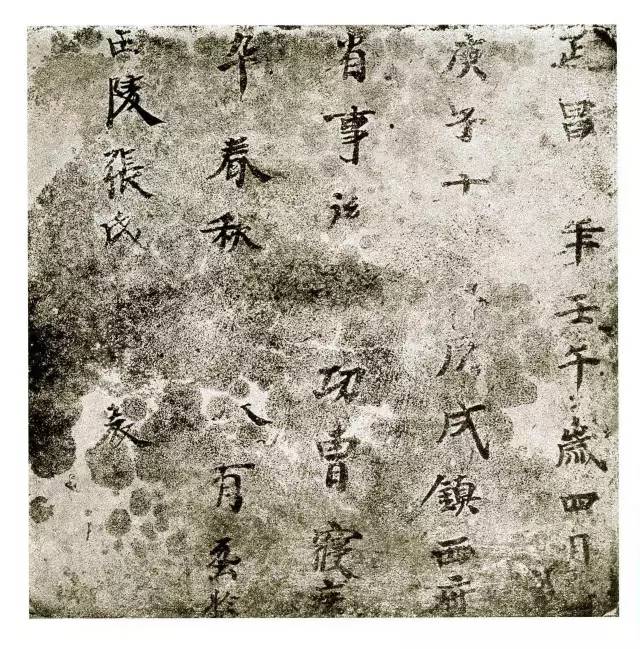 昌年壬午歲四月
庚子十戌鎮西府
省事功曹寢疾
卒春秋八有
西陵張氏表